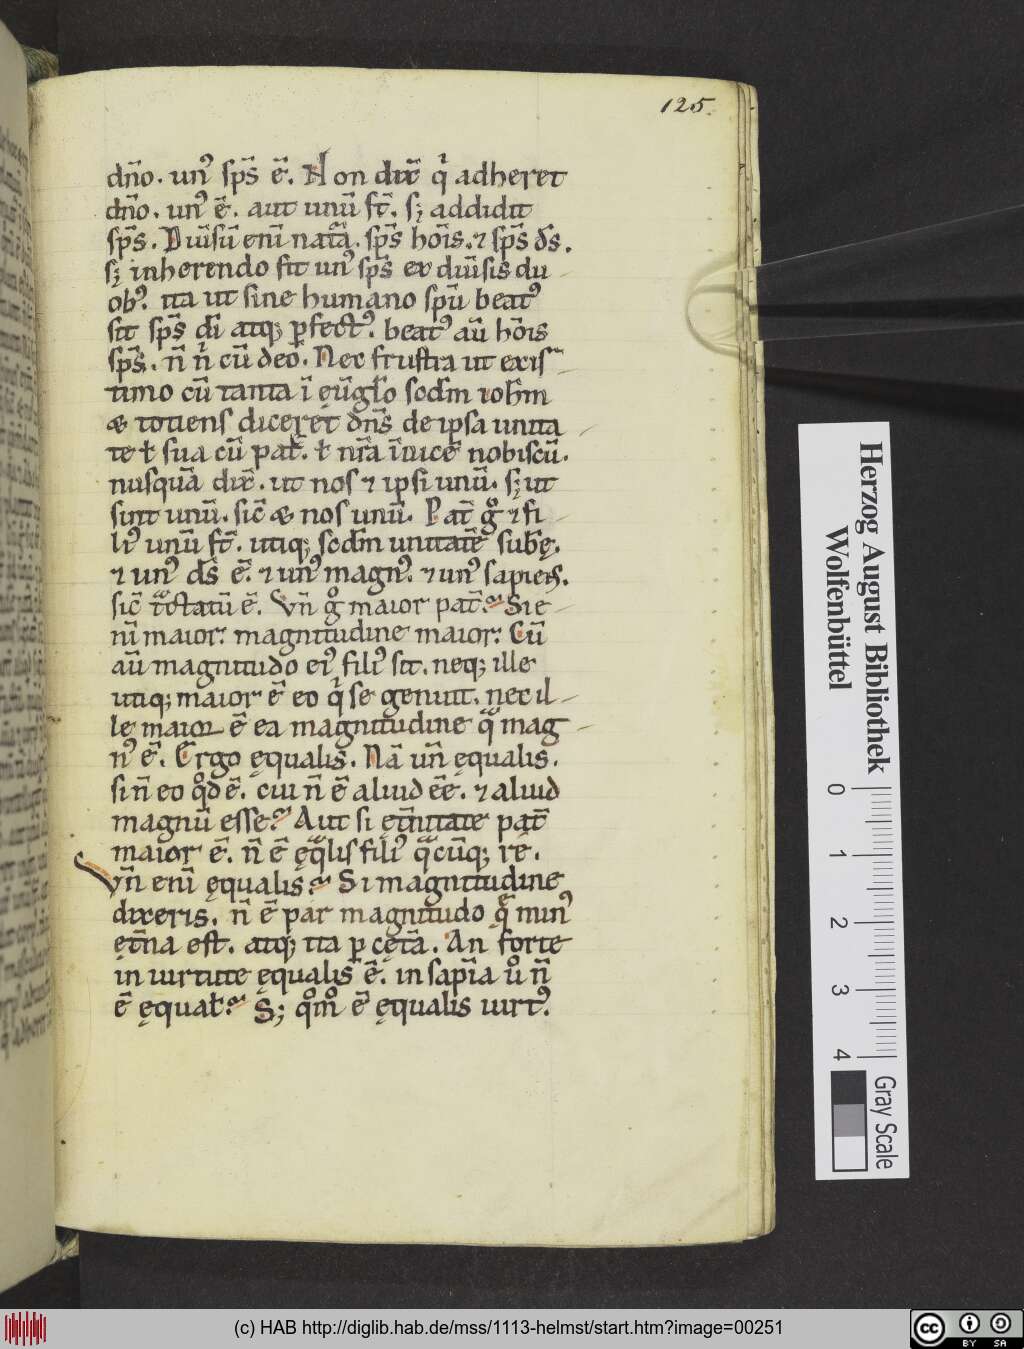 125.
dn̄o. unꝰ sp̄s ē. Non dix̄ qͥ adheret
dn̄o. unꝰ ē. aut unū st̄. sꝫ addidit
sp̄s. Diūsū enī nat̄a. sp̄s hōis. ⁊ sp̄s d̄s.
sꝫ inherendo fit unꝰ sp̄s ex diūsis du
obꝰ. ita ut sine humano sp̄u beatꝰ
sit sp̄s dī atqꝫ ꝑfectꝰ. beatꝰ aū hōis
sp̄s. n̄ nͥ cū deo. Nec frustra ut exis
timo cū tanta ī eūgło scd̄m ioh̄m
& totiens diceret dn̄s de ipsa unita
te ł sua cū pat̄. ł nr̄a īuicē nobiscū.
nusquā dix̄. ut nos ⁊ ipsi unū. sꝫ ut
sint unū. sic̄ & nos unū. Pat̄ gͦ ⁊ fi
liꝰ unū st̄. utiqꝫ scd̄m unitatē sub̄ę.
⁊ unꝰ d̄s ē. ⁊ unꝰ magnꝰ. ⁊ unꝰ sapiens.
sic̄ tͣctatū ē. Vn̄ gͦ maior pat̄? Si e
nī maior. magnitudine maior. Cū
aū magnitudo eiꝰ filiꝰ sit. neqꝫ ille
utiqꝫ maior ē eo qͥ se genuit. nec il
le maior ē ea magnitudine qͣ mag
nꝰ ē. Ergo ęqualis. Nā un̄ ęqualis.
si n̄ eo qͦd ē. cui n̄ ē aliud ēē. ⁊ aliud
magnū esse? Aut si ęt̄nitate pat̄
maior ē. n̄ ē ęqͣlis filiꝰ qͣcūqꝫ rē.
Vn̄ enī ęqualis? Si magnitudine
dixeris. n̄ ē par magnitudo qͣ minꝰ
ęt̄na est. atqꝫ ita ꝑ cęt̄a. An forte
in uirtute ęqualis ē. in sapīa uͦ n̄
ē ęqual̄? Sꝫ qͦmͦ ē ęqualis uirtꝰ.
Herzog August Bibliothek
Wolfenbüttel
0 1 2 3 4
Gray Scale
(c) HAB http://diglib.hab.de/mss/1113-helmst/start.htm?image=00251
cc BY SA